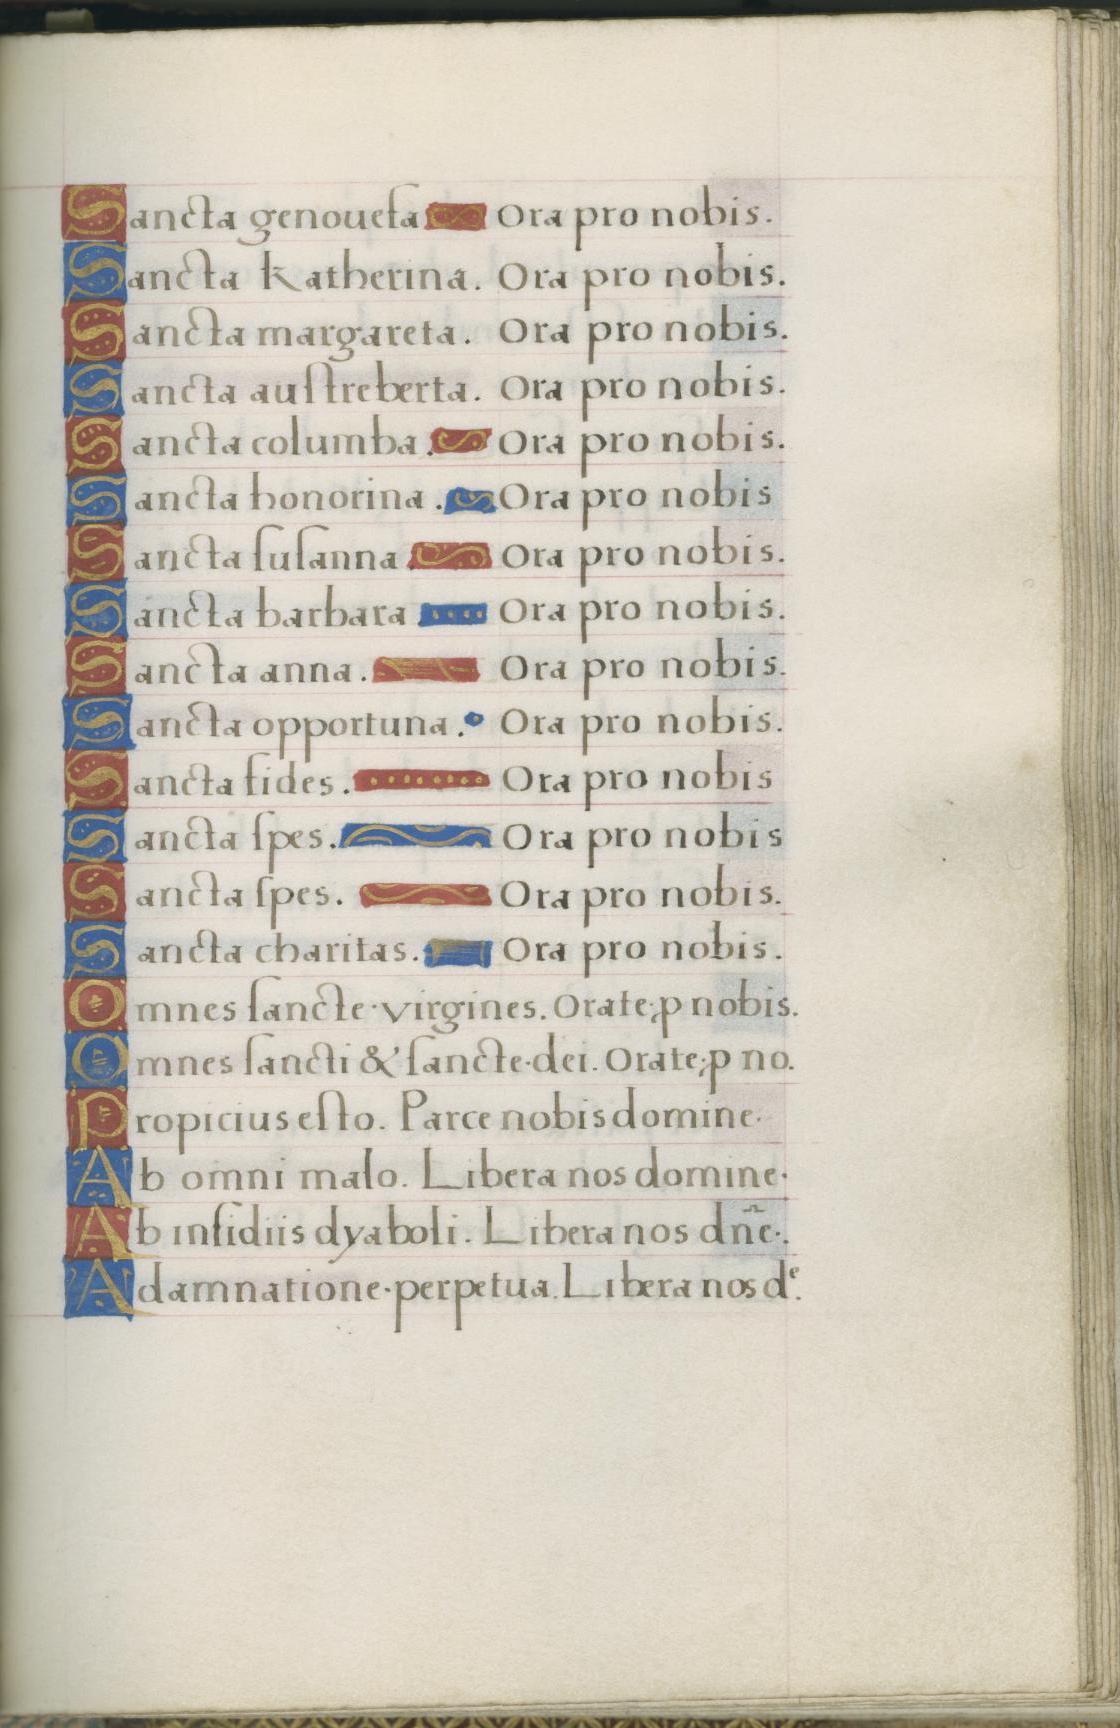 Sancta genouefa Ora pro nobis.
Sancta Katherina. Ora pro nobis.
Sancta margareta. Ora pro nobis.
Sancta auſtreberta. Ora pro nobis.
Sancta columba. Ora pro nobis.
Sancta honorina. Ora pro nobis
Sancta ſuſanna Ora pro nobis.
Sancta barbara Ora pro nobis.
Sancta anna. Ora pro nobis.
Sancta opportuna. Ora pro nobis.
Sancta fides. Ora pro nobis
Sancta ſpes. Ora pro nobis
Sancta ſpes. Ora pro nobis.
Sancta charitas. Ora pro nobis.
Omnes ſancte·virgines. Orate·p nobis.
Omnes ſancti & ſancte·dei. Orate·p no.
Propicius eſto. Parce nobis domine·
Ab omni malo. Libera nos domine·
Ab inſidiis dyaboli. Libera nos dn̄e·.
A damnatione·perpetua. Libera nos dᵉ.